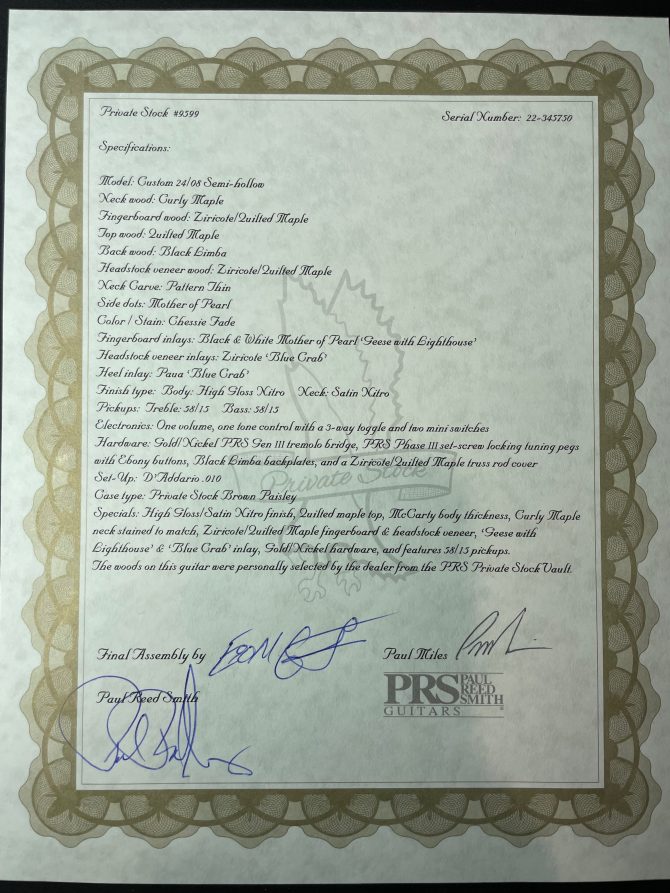 Private Stock #9599
Serial Number: 22-345750
Specifications:
Model: Custom 24/08 Semi-hollow
Neck wood: Curly Maple
Fingerboard wood: Ziricote/Quilted Maple
Top wood: Quilted Maple
Back wood: Black Limba
Headstock veneer wood: Ziricote/Quilted Maple
Neck Carve: Pattern Thin
Side dots: Mother of Pearl
Color / Stain: Chessie Fade
Fingerboard inlays: Black & White Mother of Pearl ‘Geese with Lighthouse’
Headstock veneer inlays: Ziricote ‘Blue Crab’
Heel inlay: Paua ‘Blue Crab’
Finish type: Body: High Gloss Nitro Neck: Satin Nitro
Pickups: Treble: 58/15 Bass: 58/15
Electronics: One volume, one tone control with a 3-way toggle and two mini switches
Hardware: Gold/Nickel PRS Gen III tremolo bridge, PRS Phase III set-screw locking tuning pegs
with Ebony buttons, Black Limba backplates, and a Ziricote/Quilted Maple truss rod cover
Private Stock
Set-Up: D'Addario .010
Case type: Private Stock Brown Paisley
Specials: High Gloss/Satin Nitro finish, Quilted maple top, McCarty body thickness, Curly Maple
neck stained to match, Ziricote/Quilted Maple fingerboard & headstock veneer, ‘Geese with
Lighthouse’ & ‘Blue Crab’ inlay, Gold/Nickel hardware, and features 58/15 pickups.
The woods on this guitar were personally selected by the dealer from the PRS Private Stock Vault.
Final Assembly by
Paul Miles
Paul Reed Smith
PRS PAUL REED SMITH
GUITARS